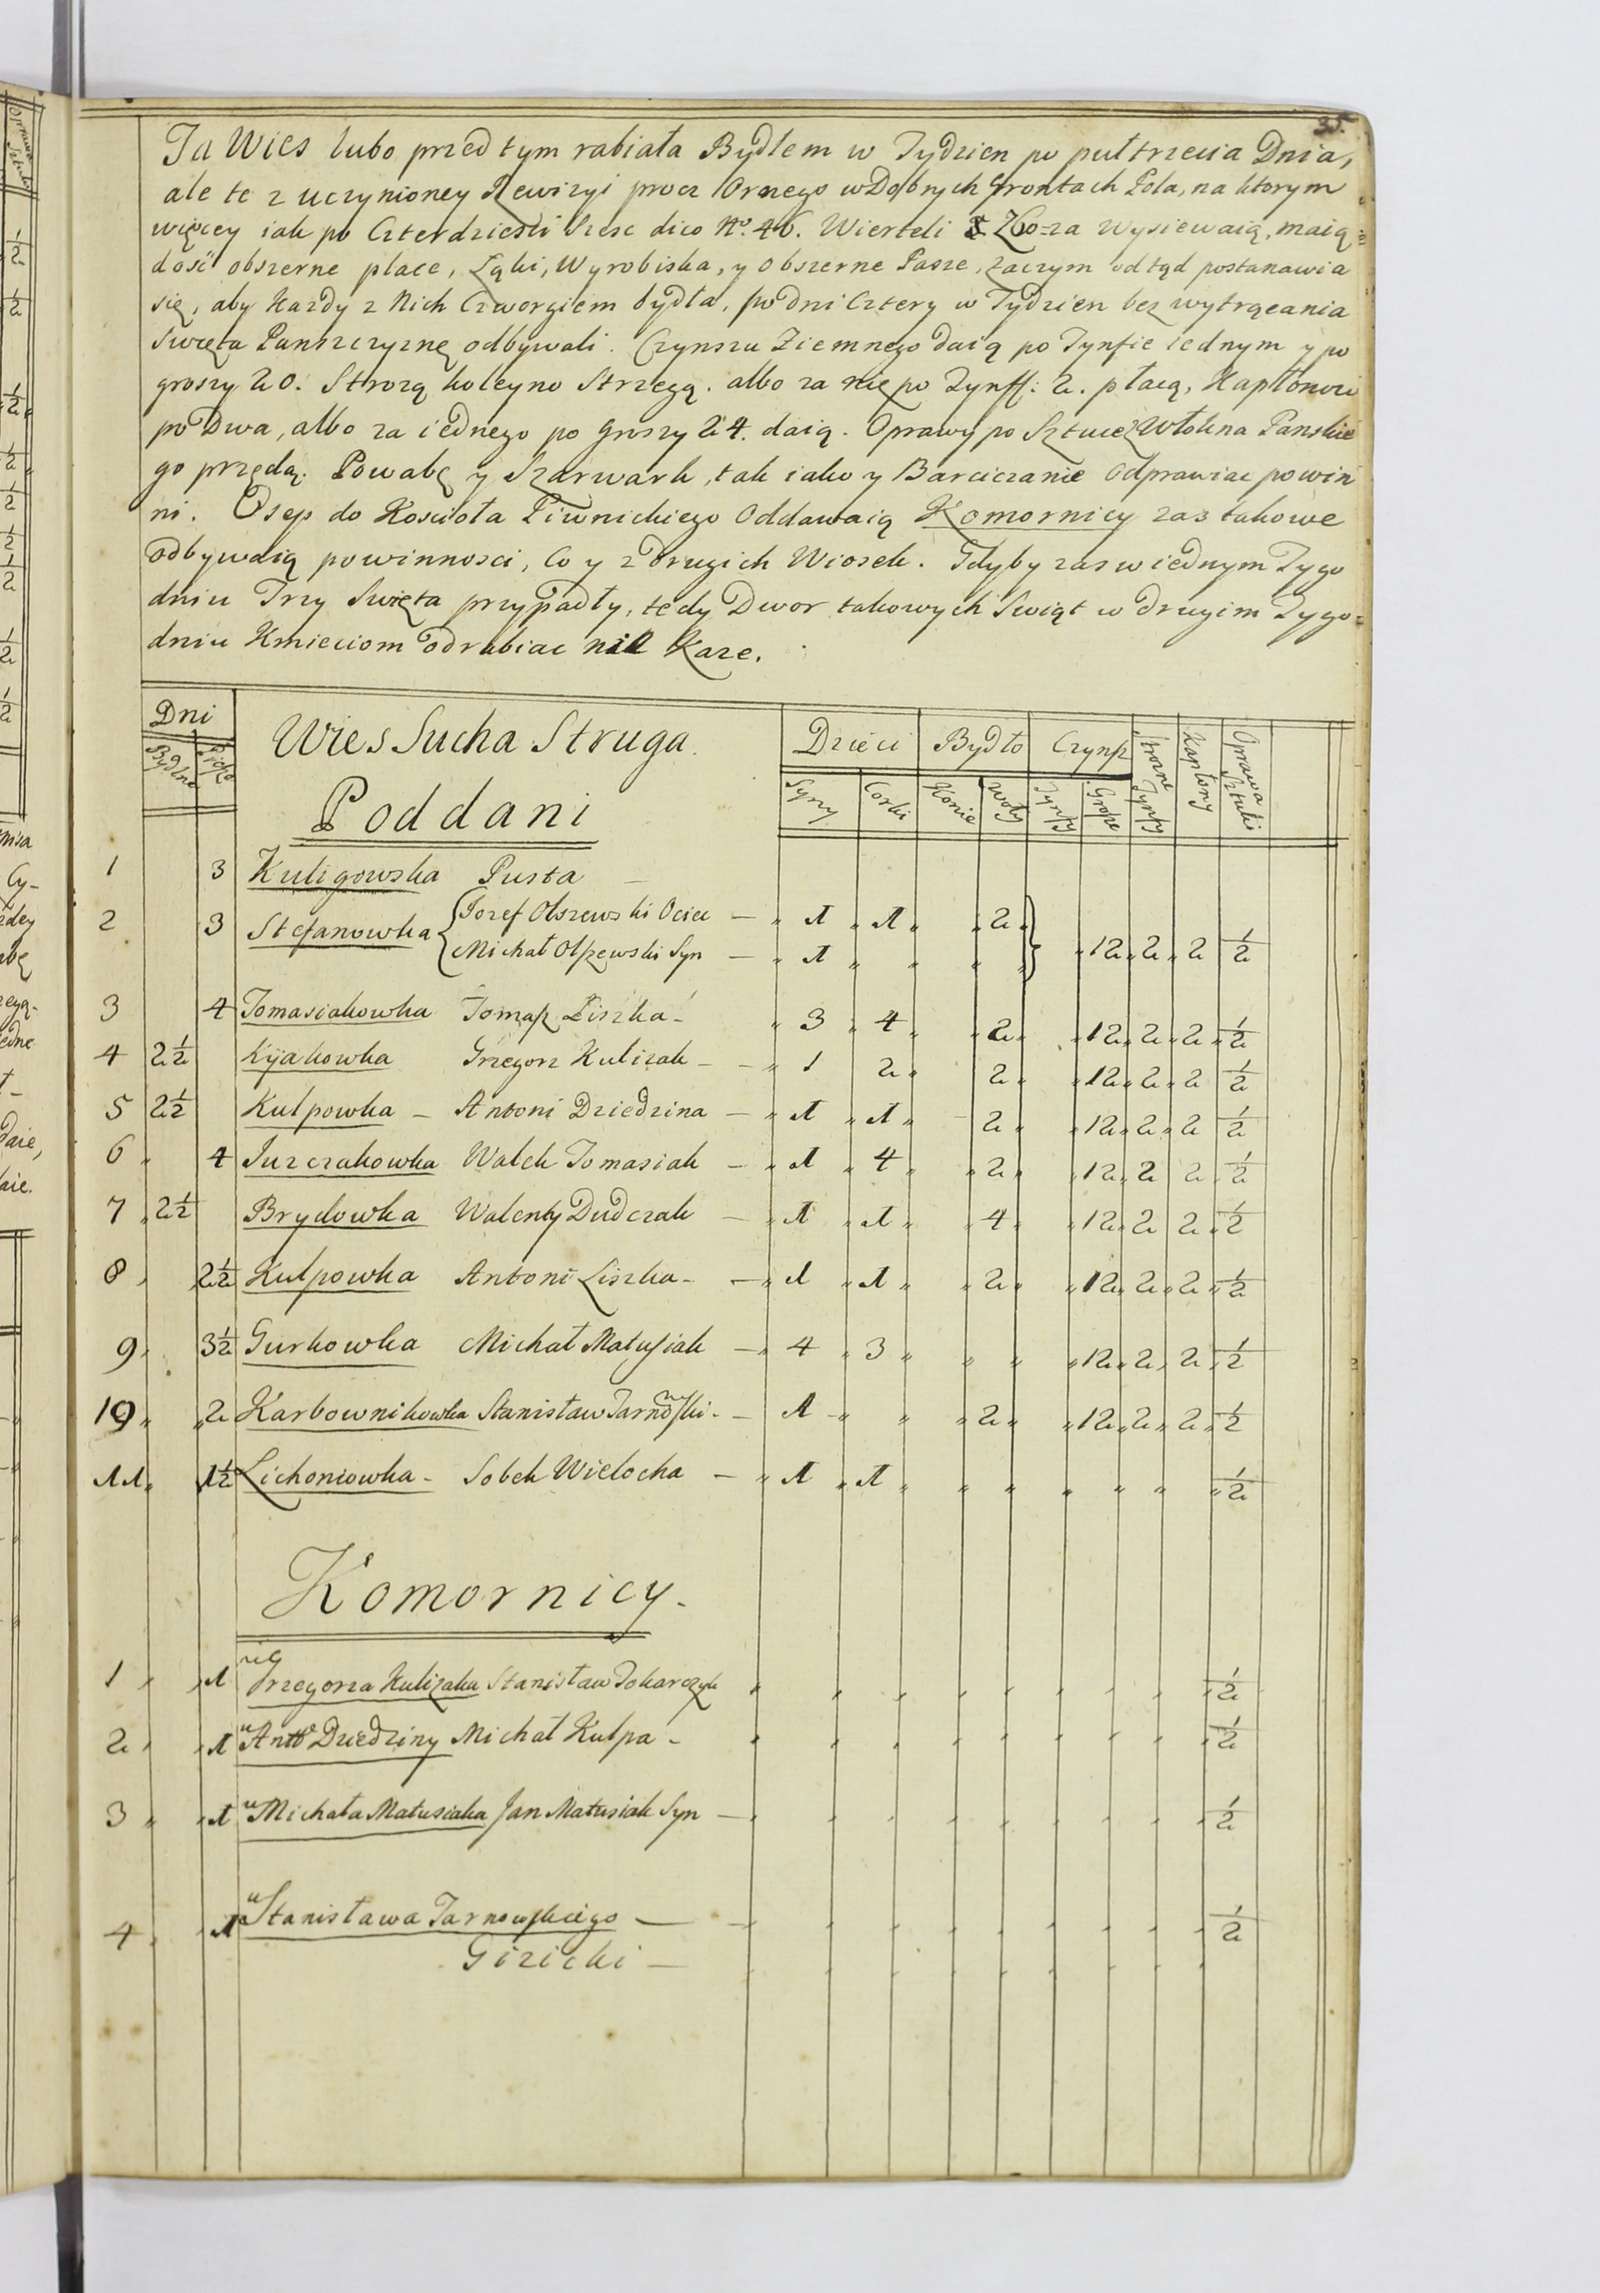 35.
Ta Wies lubo przed tym rabiała Bydłem w Tydzien po pułtrzecia Dnia,
ale te z uczynioney Rewizyi procz Ornego w Dobrych Grontach Pola, na ktorym
więcey iak po Czterdziesti Szesc dico No. 46. Wierteli Zboza wysiewaią, maią
dość obszerne place, Łąki, Wyrobiska, y obszerne Pasze, zaczym odtąd postanawia
się, aby Kazdy z Nich Czworgiem bydła, po dni Cztery w Tydzien bez wytrącania
Swięta Panszczyznę odbywali. Czynszu Ziemnego daią po Tynfie iednym y po
groszy 20. Strozą koleyno Strzegą. albo za nię po Tynff: 2. płacą, Kapłonow
po Dwa, albo za iednego po groszy 24. daią. Oprawy po Sztuce z Włokna Panskie
go przędą. Powabę y Szarwark, tak iako y Barciczanie Odprawiac powin
ni. Osep do Kościoła Piwnickiego Oddawaią Komornicy zas takowe
odbywaią powinnosci, Co y z drugich Wiosek. Gdyby zas w iednym Tygo
dniu Trzy Swięta przypadły, tedy Dwor takowych Swiąt w drugim Tygo=
dniu Kmieciom odrabiac nie Kaze.
Dni Wies Sucha Struga. Dzieci Bydło Czynsz Strozne Tynfy Kapłony Oprawa Sztuki
Bydlne Pieszo Syny Corki Konie Woły Tynfy Grosze
Poddani
1 3 Kuligowska Pusta —
2 3 Stefanowka { Jozef Olszewski Ociec — 1 1 2 }
Michał Olszewski Syn — 1 12 2 2 1/2
3 4 Tomasiakowka Tomasz Liszka - 3 4 2 12 2 2 1/2
4 2 1/2 Kijakowka Grzegorz Kulizak - 1 2 2 12 2 2 1/2
5 2 1/2 Kulpowka - Antoni Dziedzina — 1 1 2 12 2 2 1/2
6 4 Jurczakowka Walek Tomasiak — 1 4 2 12 2 2 1/2
7 2 1/2 Brydowka Walenty Dudczak — 1 1 4 12 2 2 1/2
8 2 1/2 Kulpowka Antoni Liszka - 1 1 2 12 2 2 1/2
9 3 1/2 Gurkowka Michał Matusiak — 4 3 12 2 2 1/2
10 2 Karbownikowka Stanisław Tarnowski - 1 2 12 2 2 1/2
11 1 1/2 Lichoniowka - Sobek Wielocha — 1 1 1/2
Komornicy.
1 1 u Grzegorza Kulizaka Stanisław Tokarczyk 1/2
2 1 u Antto Dziedziny Michał Kulpa - 1/2
3 1 u Michała Matusiaka Jan Matusiak Syn — 1/2
4 1 u Stanisława Tarnowskiego — 1/2
Gizicki —